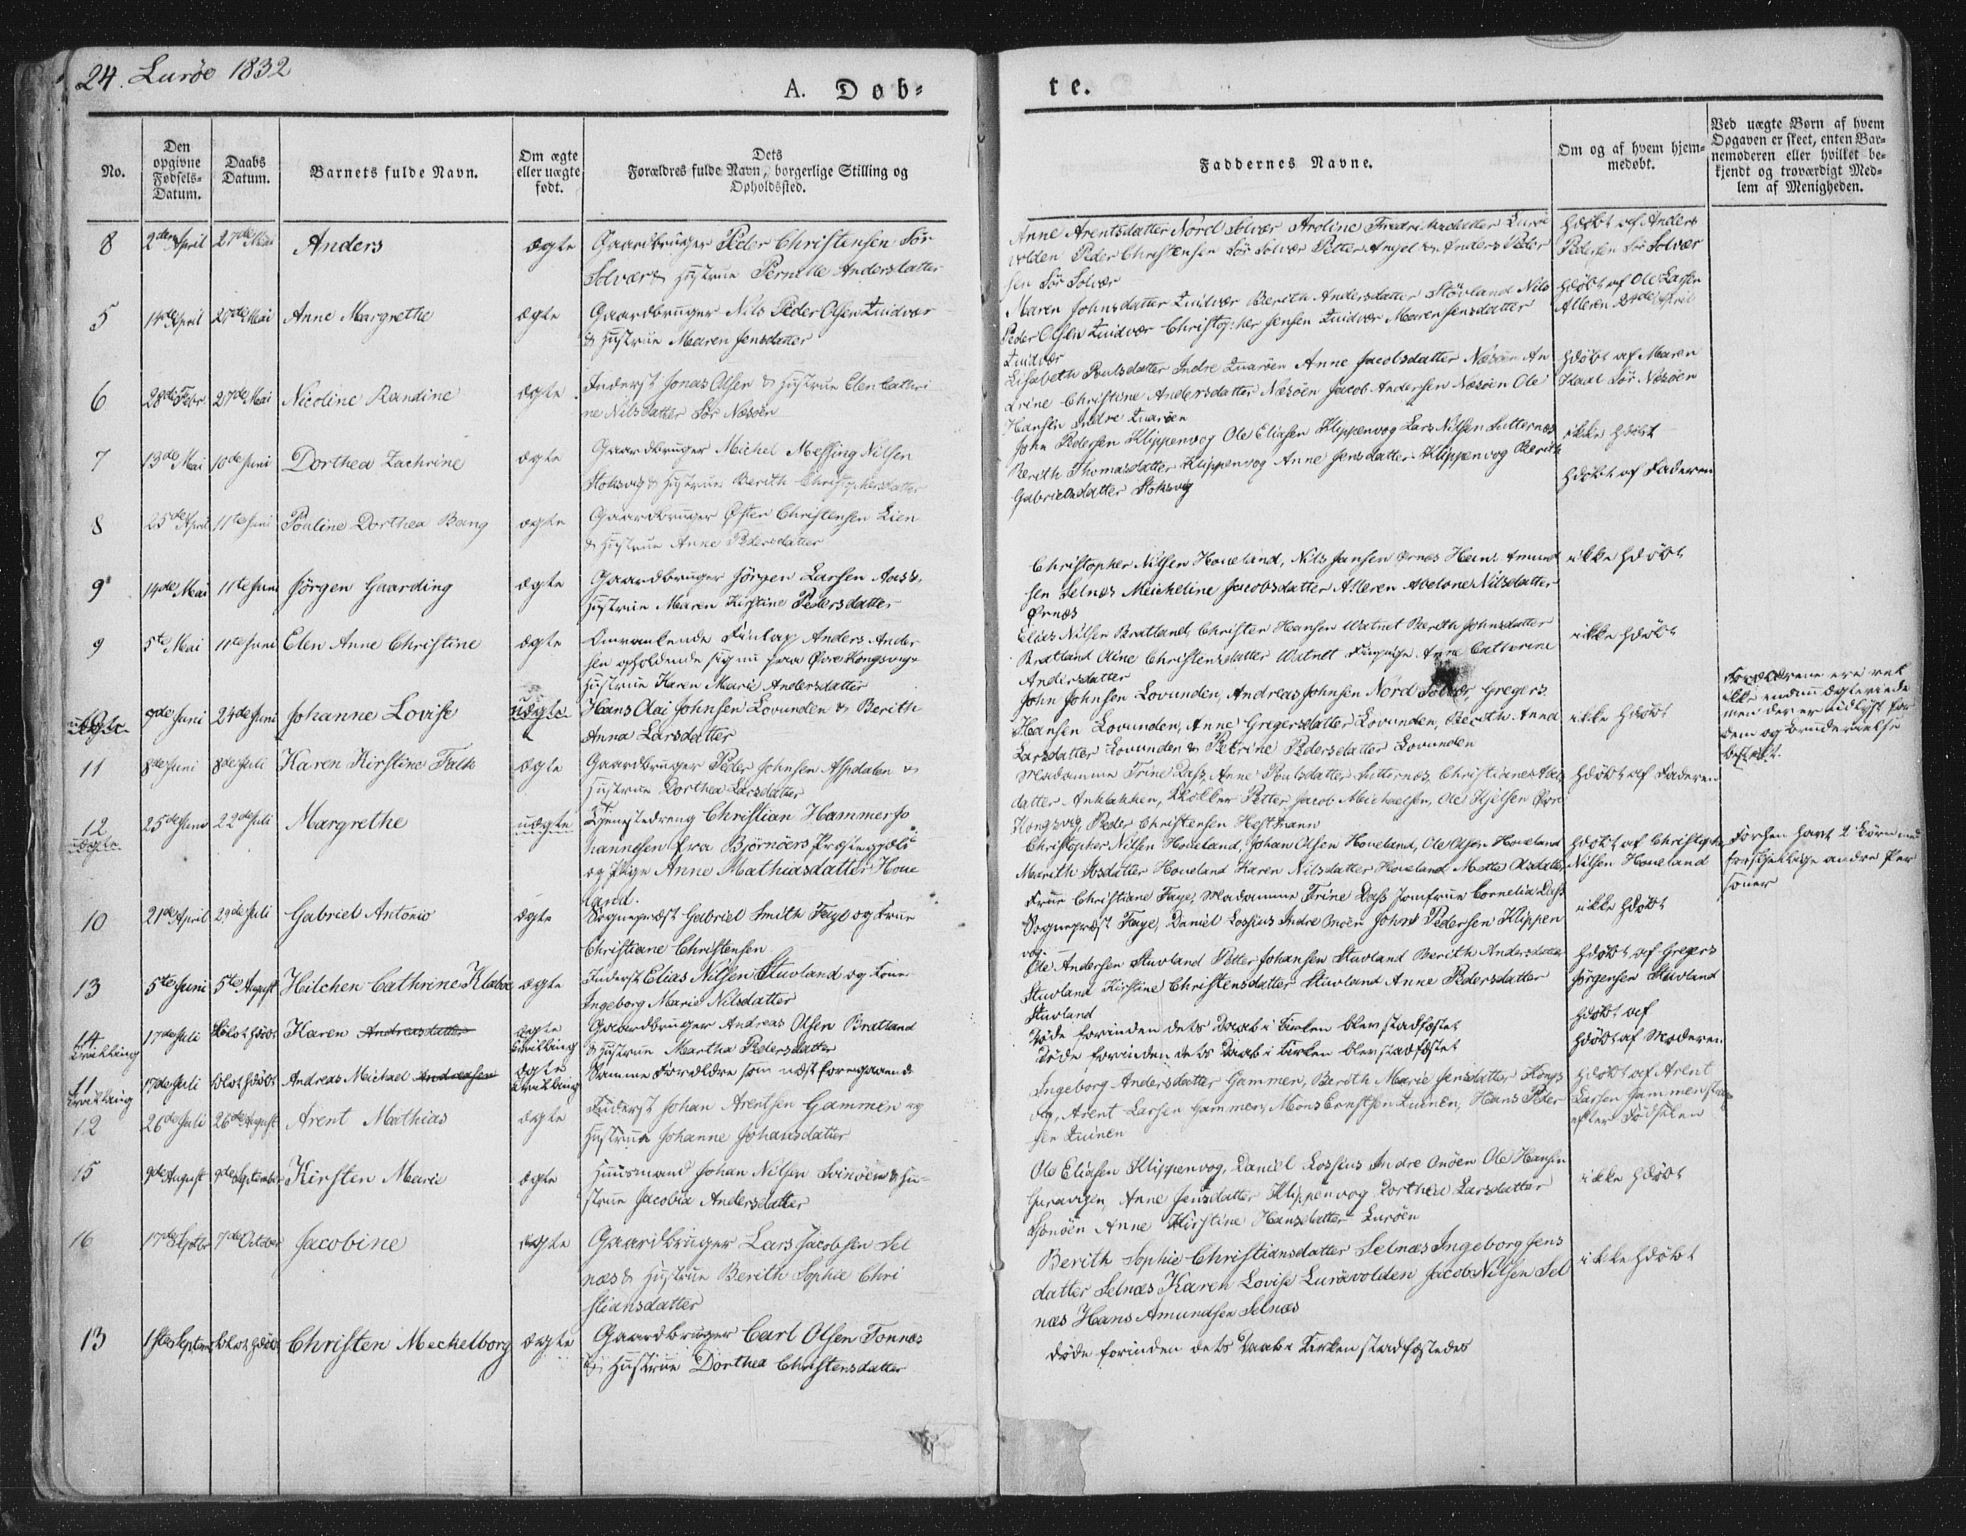 24. Lurøe 1832
A. Døb-
te.
No.
Den opgivne Fødsels-Datum.
Daabs Datum.
Barnets fulde Navn.
Om ægte eller uægte født.
Dets Forældres fulde Navn, borgerlige Stilling og Opholdssted.
Faddernes Navne.
Om og af hvem hjemmedøbt.
Ved uægte Børn af hvem Opgaven er skeet, enten Barnemoderen eller hvilket bekjendt og troværdigt Medlem af Menigheden.
8 2den April 27de Mai Anders ægte Gaardbruger Peder Christensen Sør
Solvær & Hustrue Pernille Andersdatter
Anne Arentsdatter Nord Solvær Aroline Fredriksdatter Lurøe
volden Peder Christensen Sør Solvær Petter Angel Anders Peder
sen Sør Solvær
Hdøbt af Anders
Pedersen Sør Solvær
5 14de April 27de Mai Anne Margrethe ægte Gaardbruger Nils Peder Olsen Quidvær
& Hustrue Maren Jensdatter
Maren Johnsdatter Quidvær Berith Andersdatter Støvland Nils
Peder Olsen Quidvær Christopher Jensen Quidvær Maren Jensdatter
Quidvær
Hdøbt af Ole Larsen
Alleren April
6 28de Febr 27de Mai Nicoline Randine ægte Inderst Jonas Olsen & Hustrue Elen Cathri
ne Nilsdatter Sør Næsøen
Elisabeth Poulsdatter Indre Quarøen Anne Jacobsdatter Næsøen An
Christine Andersdatter Næsøen Jacob Andersen Næsøen Ole
Hansen Indre Quarøen
Hdøbt af Maren
Sør Næsøen
7 13de Mai 10de Juni Dorthea Zachrine ægte Gaardbruger Michel Messing Nilsen
Stoksvig & Hustrue Berith Christophersdatter
John Pedersen Klippenvog Ole Eliasen Klippenvog Lars Nilsen Sutternæs
Berith Thomasdatter Klippenvog Anne Jensdatter Klippenvog Berith
Gabrielsdatter Stoksvig
ikke Hdøbt
8 25de April 11te Juni Pauline Dorthea Bang ægte Gaardbruger Østen Christensen Lien
& Hustrue Anne Pedersdatter
Hdøbt af Faderen
9 14de Mai 11te Juni Jørgen Gaarding ægte Gaardbruger Jørgen Larsen Aas &
Hustrue Maren Kirstine Pedersdatter
Christopher Nilsen Houeland, Nils Jansen Ørnes Hans Amund
sen Selnæs Meicheline Jacobsdatter Alleren Abelone Nilsdatter
Ørnæs
ikke Hdøbt
9 5te Mai 11te Juni Elen Anne Christine ægte Omvankende Finlap Anders Ander
sen opholdende sig nu paa Øvre Kongsvig
Hustrue Karen Marie Andersdatter
Elias Nilsen Bratland, Christen Hansen Watnet Berith Johnsdatter
Bratland Oline Christensdatter Watnet Finpige Anne Catherine
Andersdatter
ikke Hdøbt
10
uægte 7de Juni 24de Juni Johanne Lovise uægte Hans Olai Johnsen Lovunden & Berith
Anna Larsdatter
John Johnsen Lovunden, Andreas Johnsen Nord Solvær, Gregers
Hansen Lovunden, Anne Gregersdatter Lovunden, Berith Anna
Larsdatter Lovunden & Petrine Pedersdatter Lovunden
ikke Hdøbt
Forældrene ere vel
ikke endnu ægteviede
men der er udlyst for
dem og Brudevielse
bestilt.
11 8de Juni 8de Juli Karen Kirstine Falk ægte Gaardbruger Peder Johnsen Aspdalen &
Hustrue Dorthea Larsdatter
Madamme Trine Dass, Anne Poulsdatter Sutternæs, Christiane Abel
datter Anklakken, Petter Jacob Michaelsen, Ole Kjelsen Øvre
Kongsvig Peder Christensen Hestmann
Hdøbt af Faderen
12
uægte 25de Juni 22de Juli Margrethe uægte Tjenestedreng Christian Hammer Jo
hannesen fra Bjørnøers Præstegjæld
og Pige Anne Mathiasdatter Houe
land.
Christopher Nilsen Houeland, Johan Olsen Houeland, Ole Olsen Houeland
Marith Ivsdatter Houeland Karen Nilsdatter Houeland Mette Olsdatter
Hdøbt af Christopher
Nilsen Houeland
Før hun havt 2 Børn med
forskjellige andre Per
soner
10 21de April 29de Juli Gabriel Antonio ægte Sognepræst Gabriel Smith Faye og Frue
Christiane Christensen
Frue Christiane Faye, Madamme Trine Dass Jomfrue Cornelia Dass
Sognepræst Faye, Daniel Lossius Indre Onøen Johns Pedersen Klippen
vog
ikke Hdøbt
13 5te Juni 5te August Hilchen Cathrine Klæboe ægte Inderst Elias Nilsen Stuvland og Kone
Ingeborg Marie Nilsdatter
Ole Andersen Stuvland Petter Johansen Stuvland Berith Andersdatter
Stuvland Kirstine Christensdatter Stuvland Anne Pedersdatter
Stuvland
Hdøbt af Gregers
Jørgensen Stuvland
14
Tvilling 17de Juli blot Hdøbt Karen Andreasdatter ægte
Tvilling Gaardbruger Andreas Olsen Bratland
& Hustrue Martha Pedersdatter
Døde forinden dets Daab i Kirken blev stadfæstet
Hdøbt af
11
Tvilling 17de Juli blot Hdøbt Andreas Michael Andreasen ægte
Tvilling Samme Forældre som næst foregaaende
Døde forinden dets Daab i Kirken blev stadfæstet
Hdøbt af Moderen
12 26de Juli 26de August Arent Mathias ægte Inderst Johan Arentsen Gammen og
Hustrue Johanne Johansdatter
Ingeborg Andersdatter Gammen, Berith Marie Jensdatter Kongs
vig, Arent Larsen Gammen, Mons Ernstsen Quinen, Hans Peder
sen Quinen
Hdøbt af Arent
Larsen Gammen strax
efter Fødselen
15 9de August 9de September Kirsten Marie ægte Huusmand Johan Nilsen Svinøen & Hu-
strue Jacobia Andersdatter
Ole Eliasen Klippenvog, Daniel Lossius Indre Onøen Ole Hansen
Haravigen, Anne Jensdatter Klippenvog Dorthea Larsdatter
Anne Kirstine Hansdatter Lurøen
ikke Hdøbt
16 17de Septbr 7de October Jacobine ægte Gaardbruger Lars Jacobsen Sel
næs & Hustrue Berith Sophie Chri
stiansdatter
Berith Sophie Christiansdatter Selnæs Ingeborg Jens
datter Selnæs Karen Lovise Lurøvolden Jacob Nilsen Sel
næs Hans Amundsen Selnæs
ikke Hdøbt
13 1ste September blot Hdøbt Christen Meckelborg ægte Gaardbruger Carl Olsen Tonnæs
& Hustrue Dorthea Christensdatter
Døde forinden dets Daab i Kirken stadfæstedes